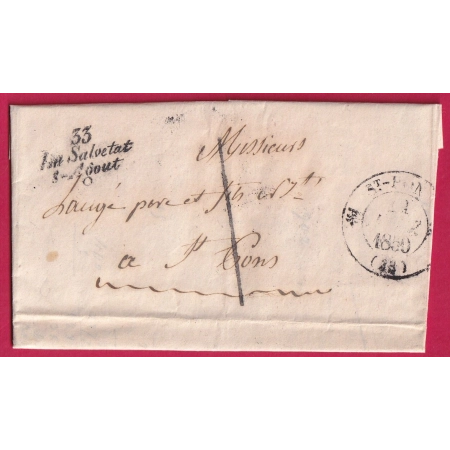 33
La Salvetat
s-Agout
Messieurs
Laugé pere et
a St Pons
1
ST-PON
1850
(33)